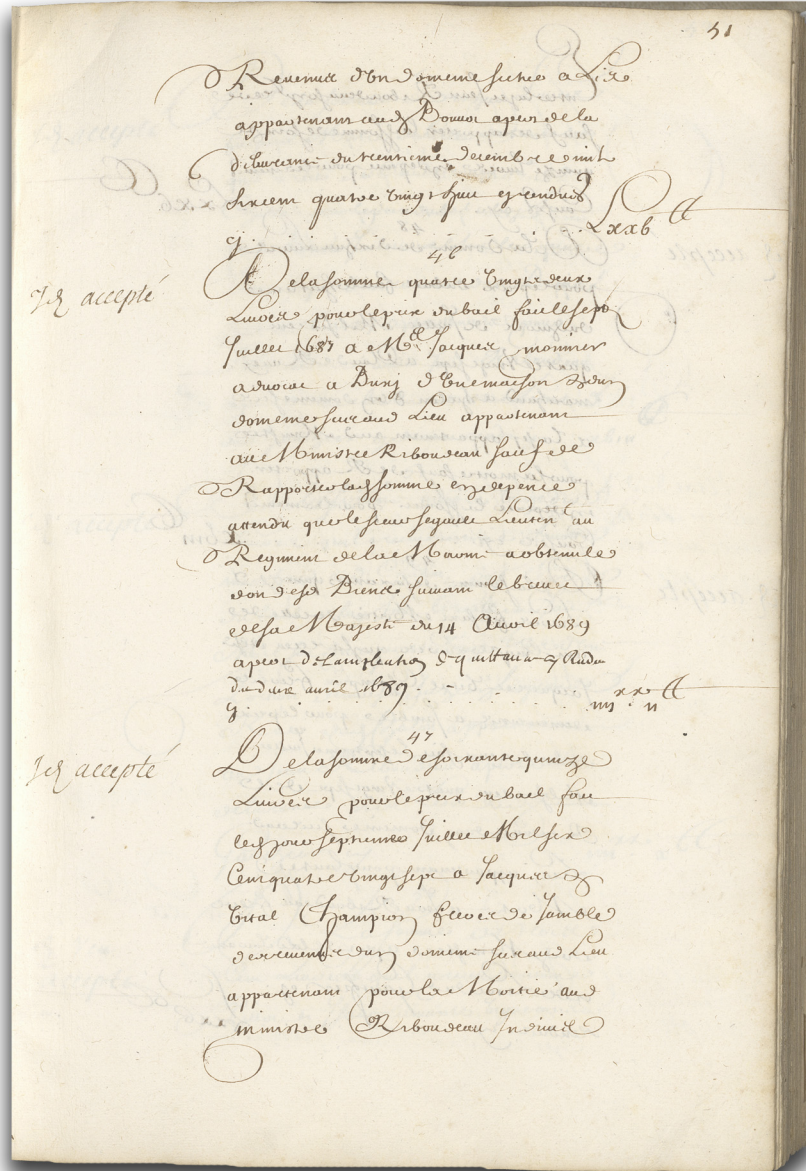 51
Revenus d'un domeine scitué a Lire
appartenant aud Bonnot a peine de la
delivrance du trentieme decembre mil
six cent quatre vingt huit cy rendus
cy . . . . Lxxb ₶
46
Jcy accepté
De la somme quatre vingt deux
Livres pour le prix du bail fait le sept
Juillet 1687 a Me Jacques monnier
advocat a Buxy d'une maison & d'un
domeine sis aud Lieu appartenant
au Ministre Riboudeau sauf de
Rapporter lad somme en depence
attendu que le sieur segault Lieutent au
Regiment de la Marine a obtenu le
don desd Biens suivant le brevet
de sa Majesté du 14 Avril 1689
dud avril 1689 .
cy . . . . iiii xx ii ₶
47
Jcy accepté
De la somme de soixante quinze
Livres pour le prix du bail fait
led jour septieme Juillet Mil six
Cent quatre vingt sept a Jacques &
Vital Champion freres de Jamble
des revenus d'un domeine sis aud Lieu
appartenant pour la Moitié aud
ministre Riboudeau Indivis